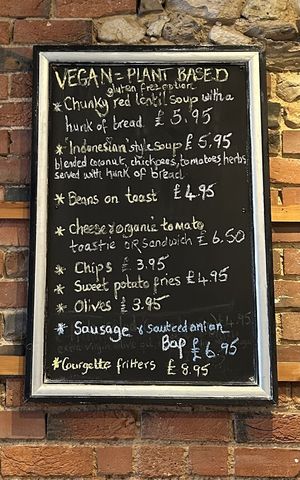 VEGAN = PLANT BASED
gluten free option
* Chunky red lentil soup with a
hunk of bread £5.95
* Indonesian style soup £5.95
blended coconut, chickpeas, tomatoes herbs
served with hunk of bread
* Beans on toast £4.95
* Cheese & organic tomato
toastie OR sandwich £6.50
* Chips £3.95
* Sweet potato fries £4.95
* Olives £3.95
* Sausage & sauteed onion
Bap £6.95
* Courgette fritters £8.95